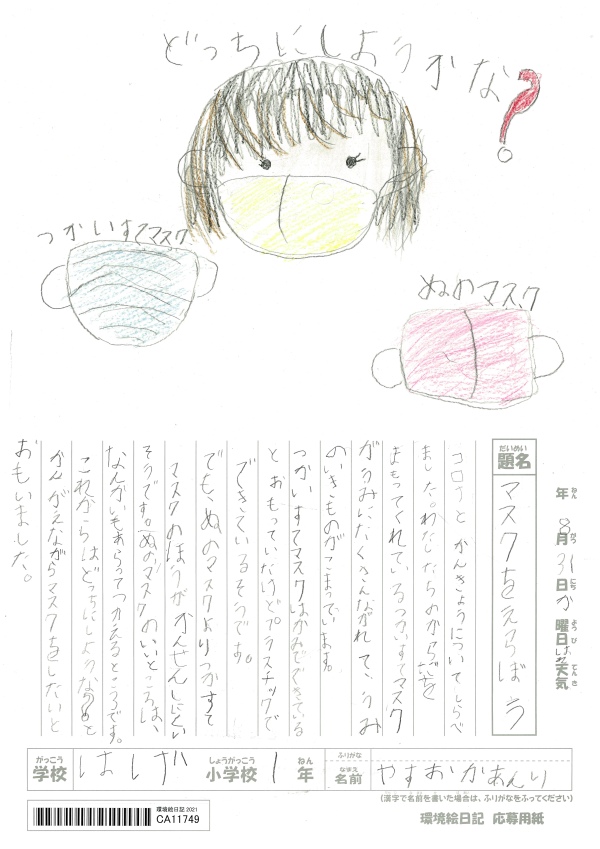 どっちにしようかな?
つかいすてマスク
ぬのマスク
年 8月31日 か曜日 天気
ねん がつ にち ようび てんき
だいめい
題名
マスクをえらぼう
コロナとかんきょうについてしらべ
ました。わたしたちのからだを
まもってくれているつかいすてマスク
がうみにたくさんながれて、うみ
のいきものがこまっています。
つかいすてマスクはかみでできている
とおもっていたけどプラスチックで
できているそうです。
でも、ぬのマスクよりつかすて
マスクのほうがかんせんしにくい
そうです。ぬのマスクのいいところは、
なんかいもあらってつかえるところです。
これからはどっちにしようかなと
かんがえながらマスクをしたいと
おもいました。
がっこう
学校
はしげ
しょうがっこう
小学校
1
ねん
年
ふりがな
なまえ
名前
やすおかあんり
(漢字で名前を書いた場合は、ふりがなをふってください)
環境絵日記 2021
CA11749
環境絵日記 応募用紙